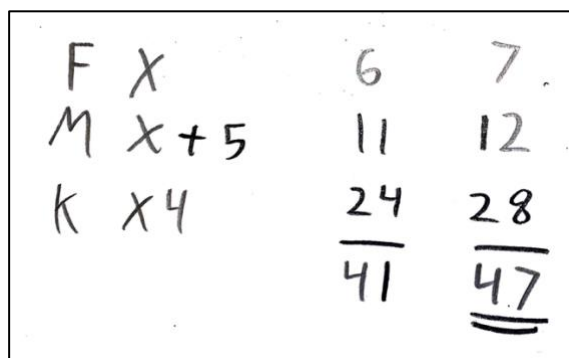 F X 6 7
M X + 5 11 12
K X4 24 28
41 47